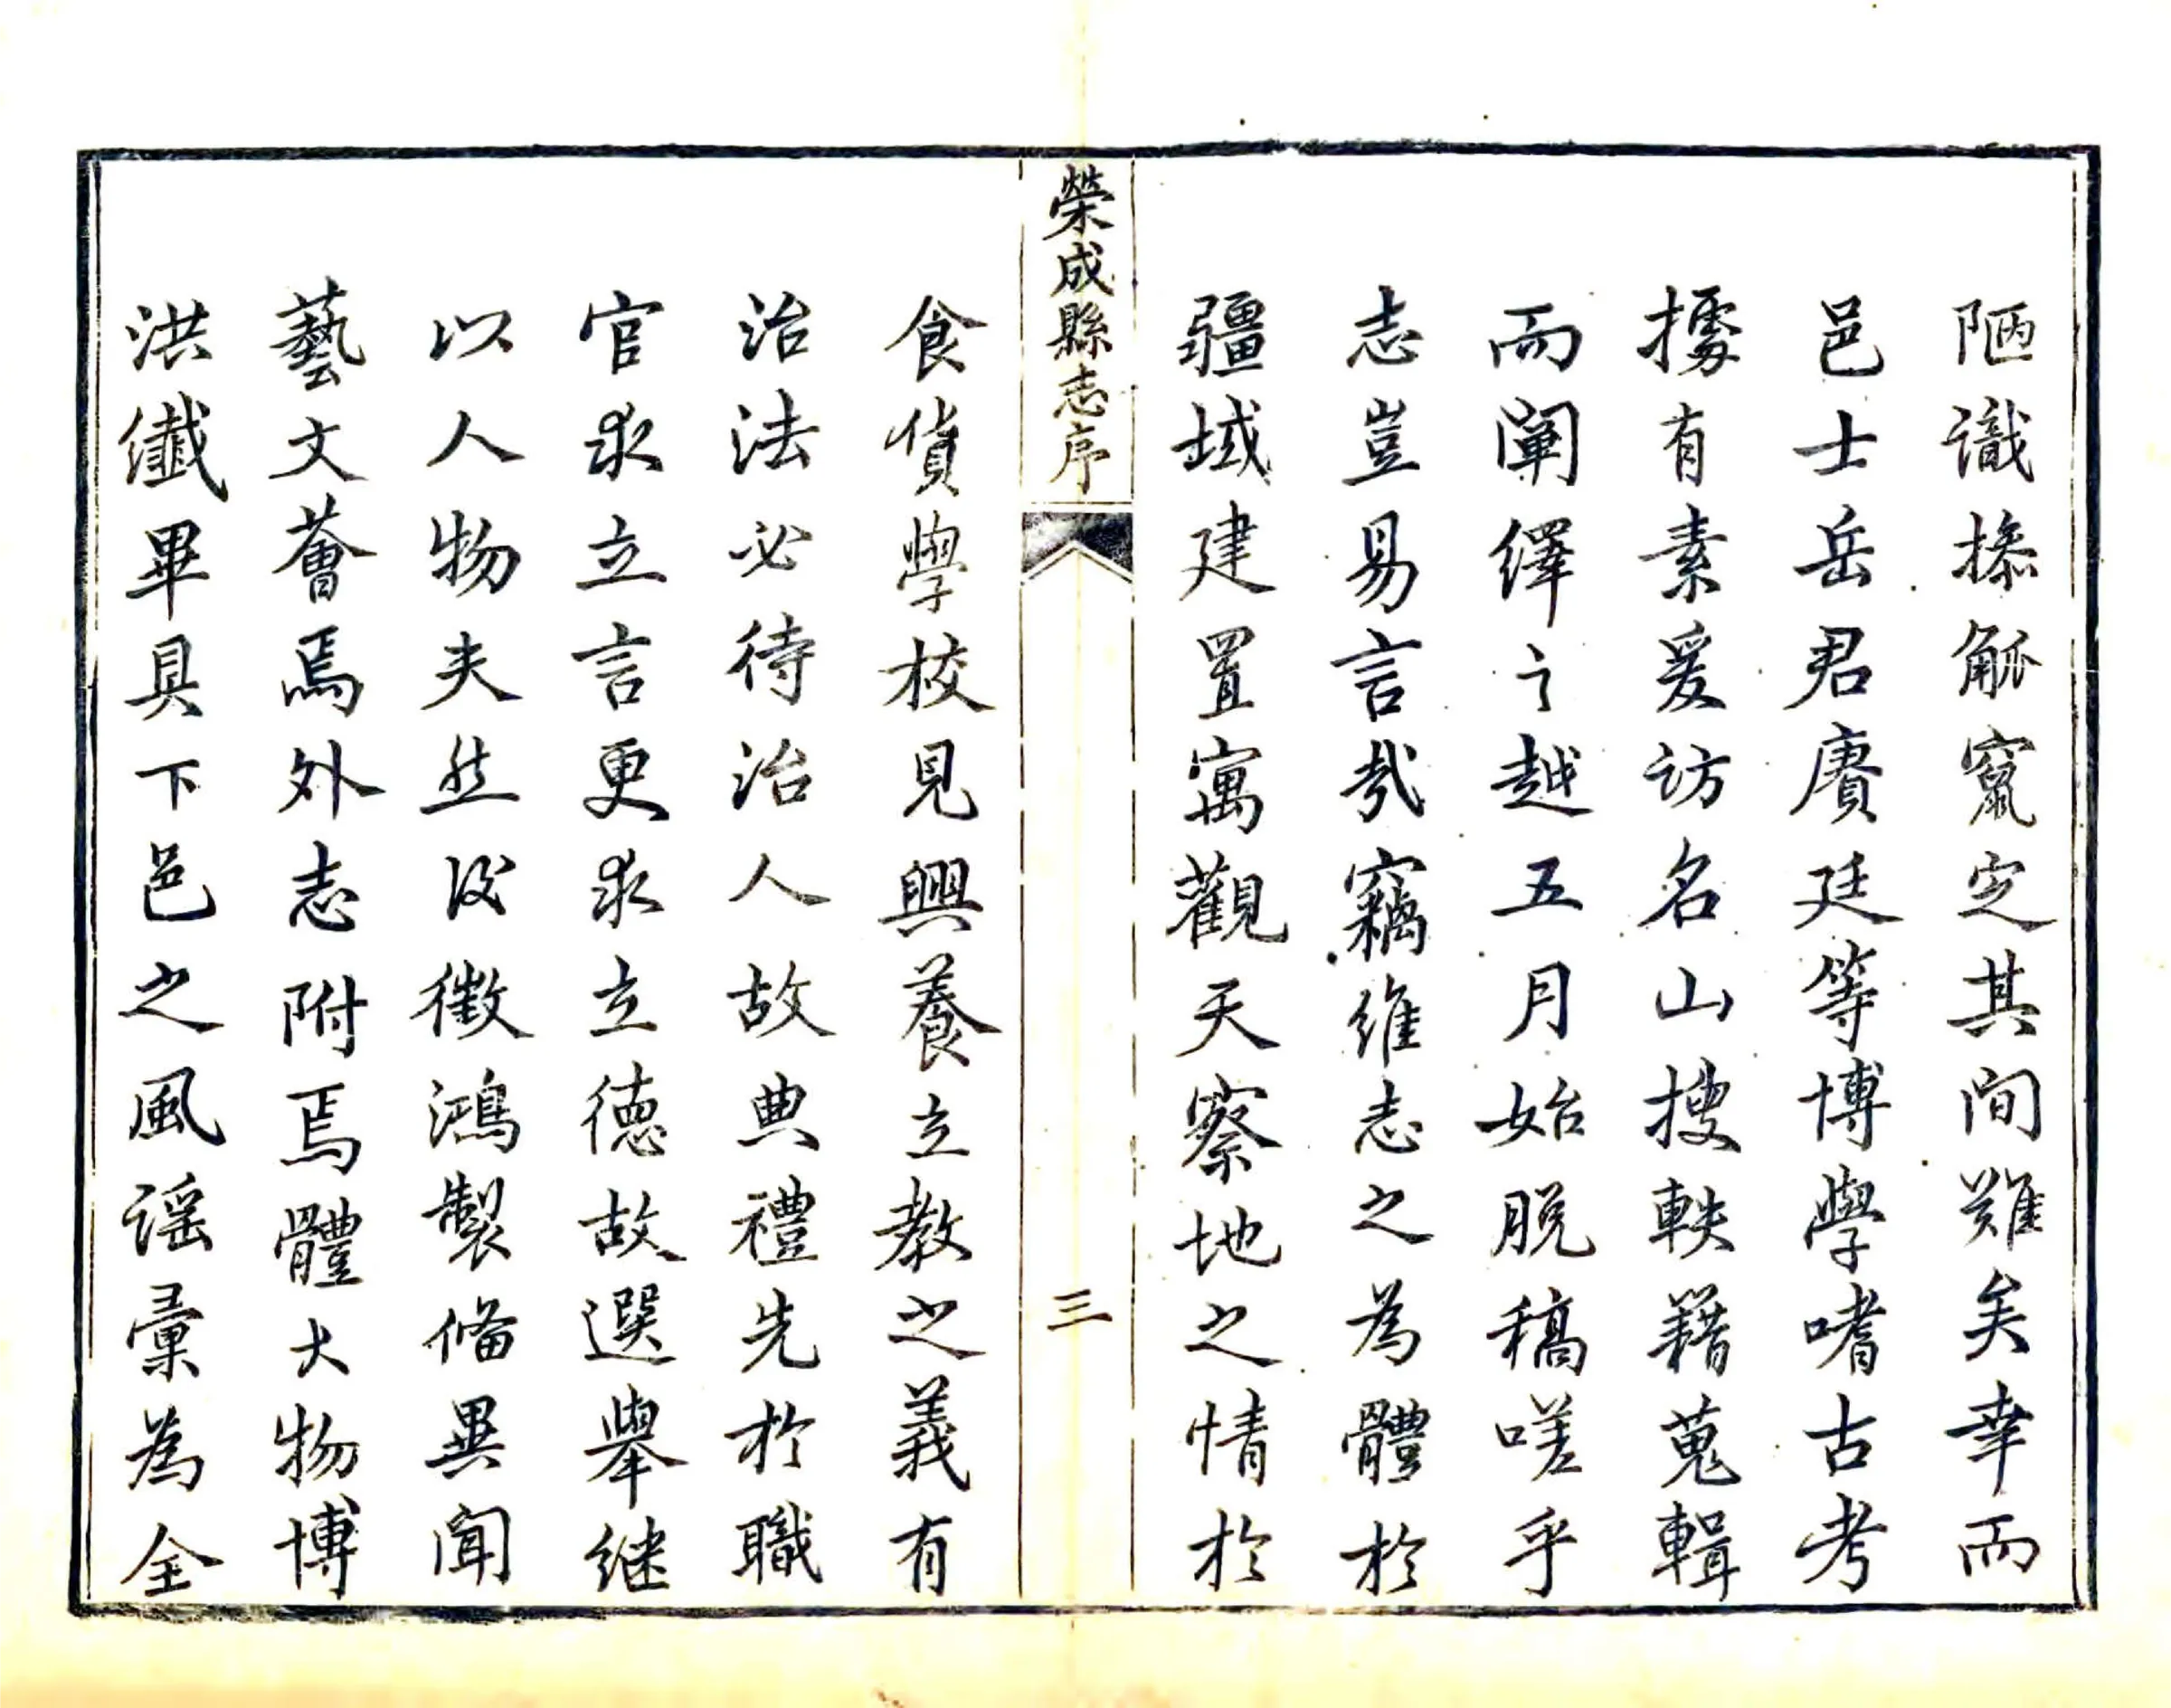 陋識操觚竄定其间難矣幸而
邑士岳君賡廷等博學嗜古考
據有素爰访名山搜軼籍蒐輯
而闡繹之越五月始脱稿嗟乎
志豈易言哉竊維志之為體於
疆域建置寓觀天察地之情於
榮成縣志序
三
食貨學校見興養立教之義有
治法必待治人故典禮先於職
官求立言更求立德故選舉继
以人物夫然後徵鴻製偹異聞
藝文薈焉外志附焉體大物博
洪纖畢具下邑之風谣彙為全